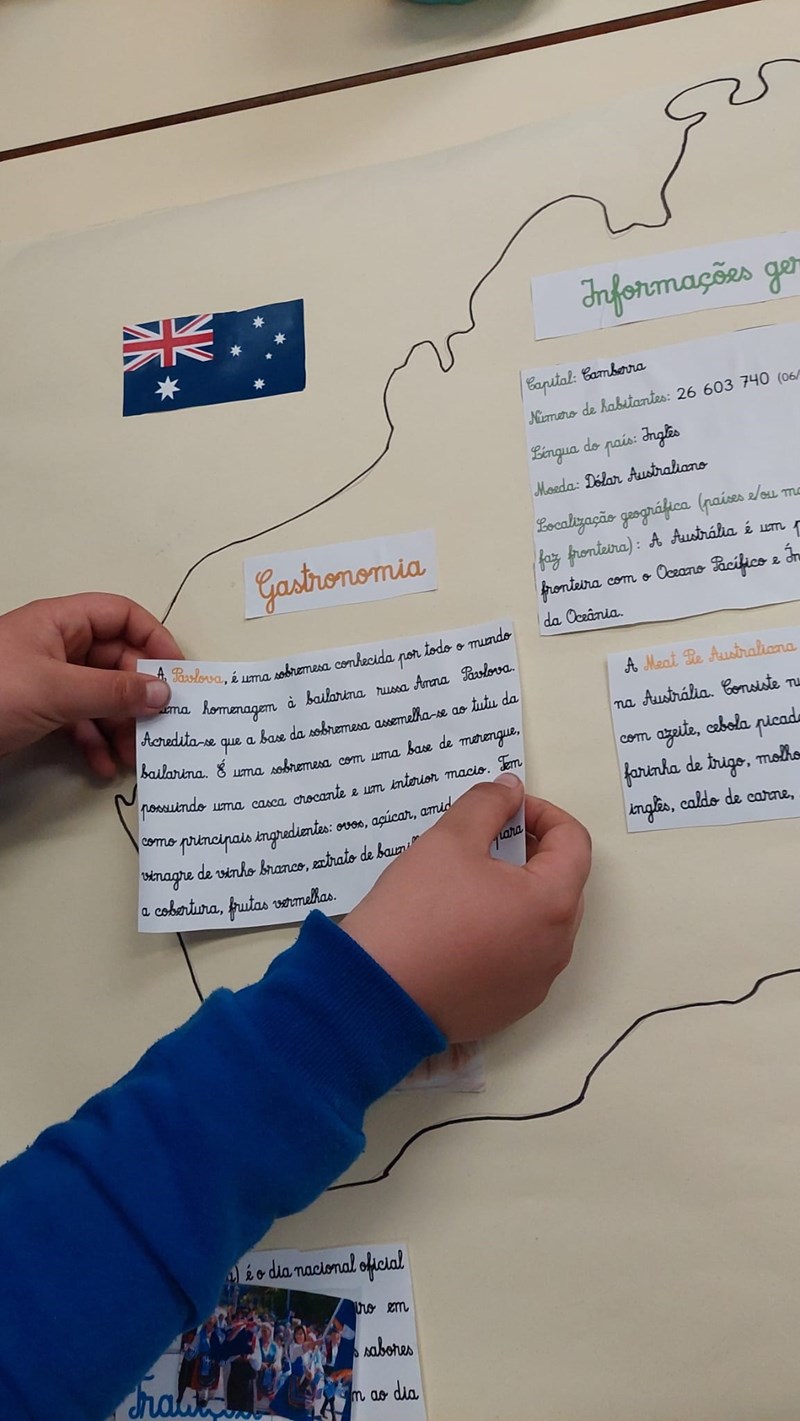 Informações
Capital: Camberra
Número de habitantes: 26 603 740 (06/
Língua do país: Inglês
Moeda: Dólar Australiano
Localização geográfica (países e/ou
faz fronteira): A Austrália é um
fronteira com o Oceano Pacífico e
da Oceânia.
Gastronomia
A Pavlova, é uma sobremesa conhecida por todo o mundo
uma homenagem à bailarina russa Anna Pavlova.
Acredita-se que a base da sobremesa assemelha-se ao tutu da
bailarina. É uma sobremesa com uma base de merengue,
possuindo uma casca crocante e um interior macio. Tem
como principais ingredientes: ovos, açúcar,
vinagre de vinho branco, extrato de para
a cobertura, frutas vermelhas.
A Meat Pie Australiana
na Austrália. Consiste
com azeite, cebola
farinha de trigo, molho
inglês, caldo de carne,
é o dia nacional oficial
em
sabores
ao dia